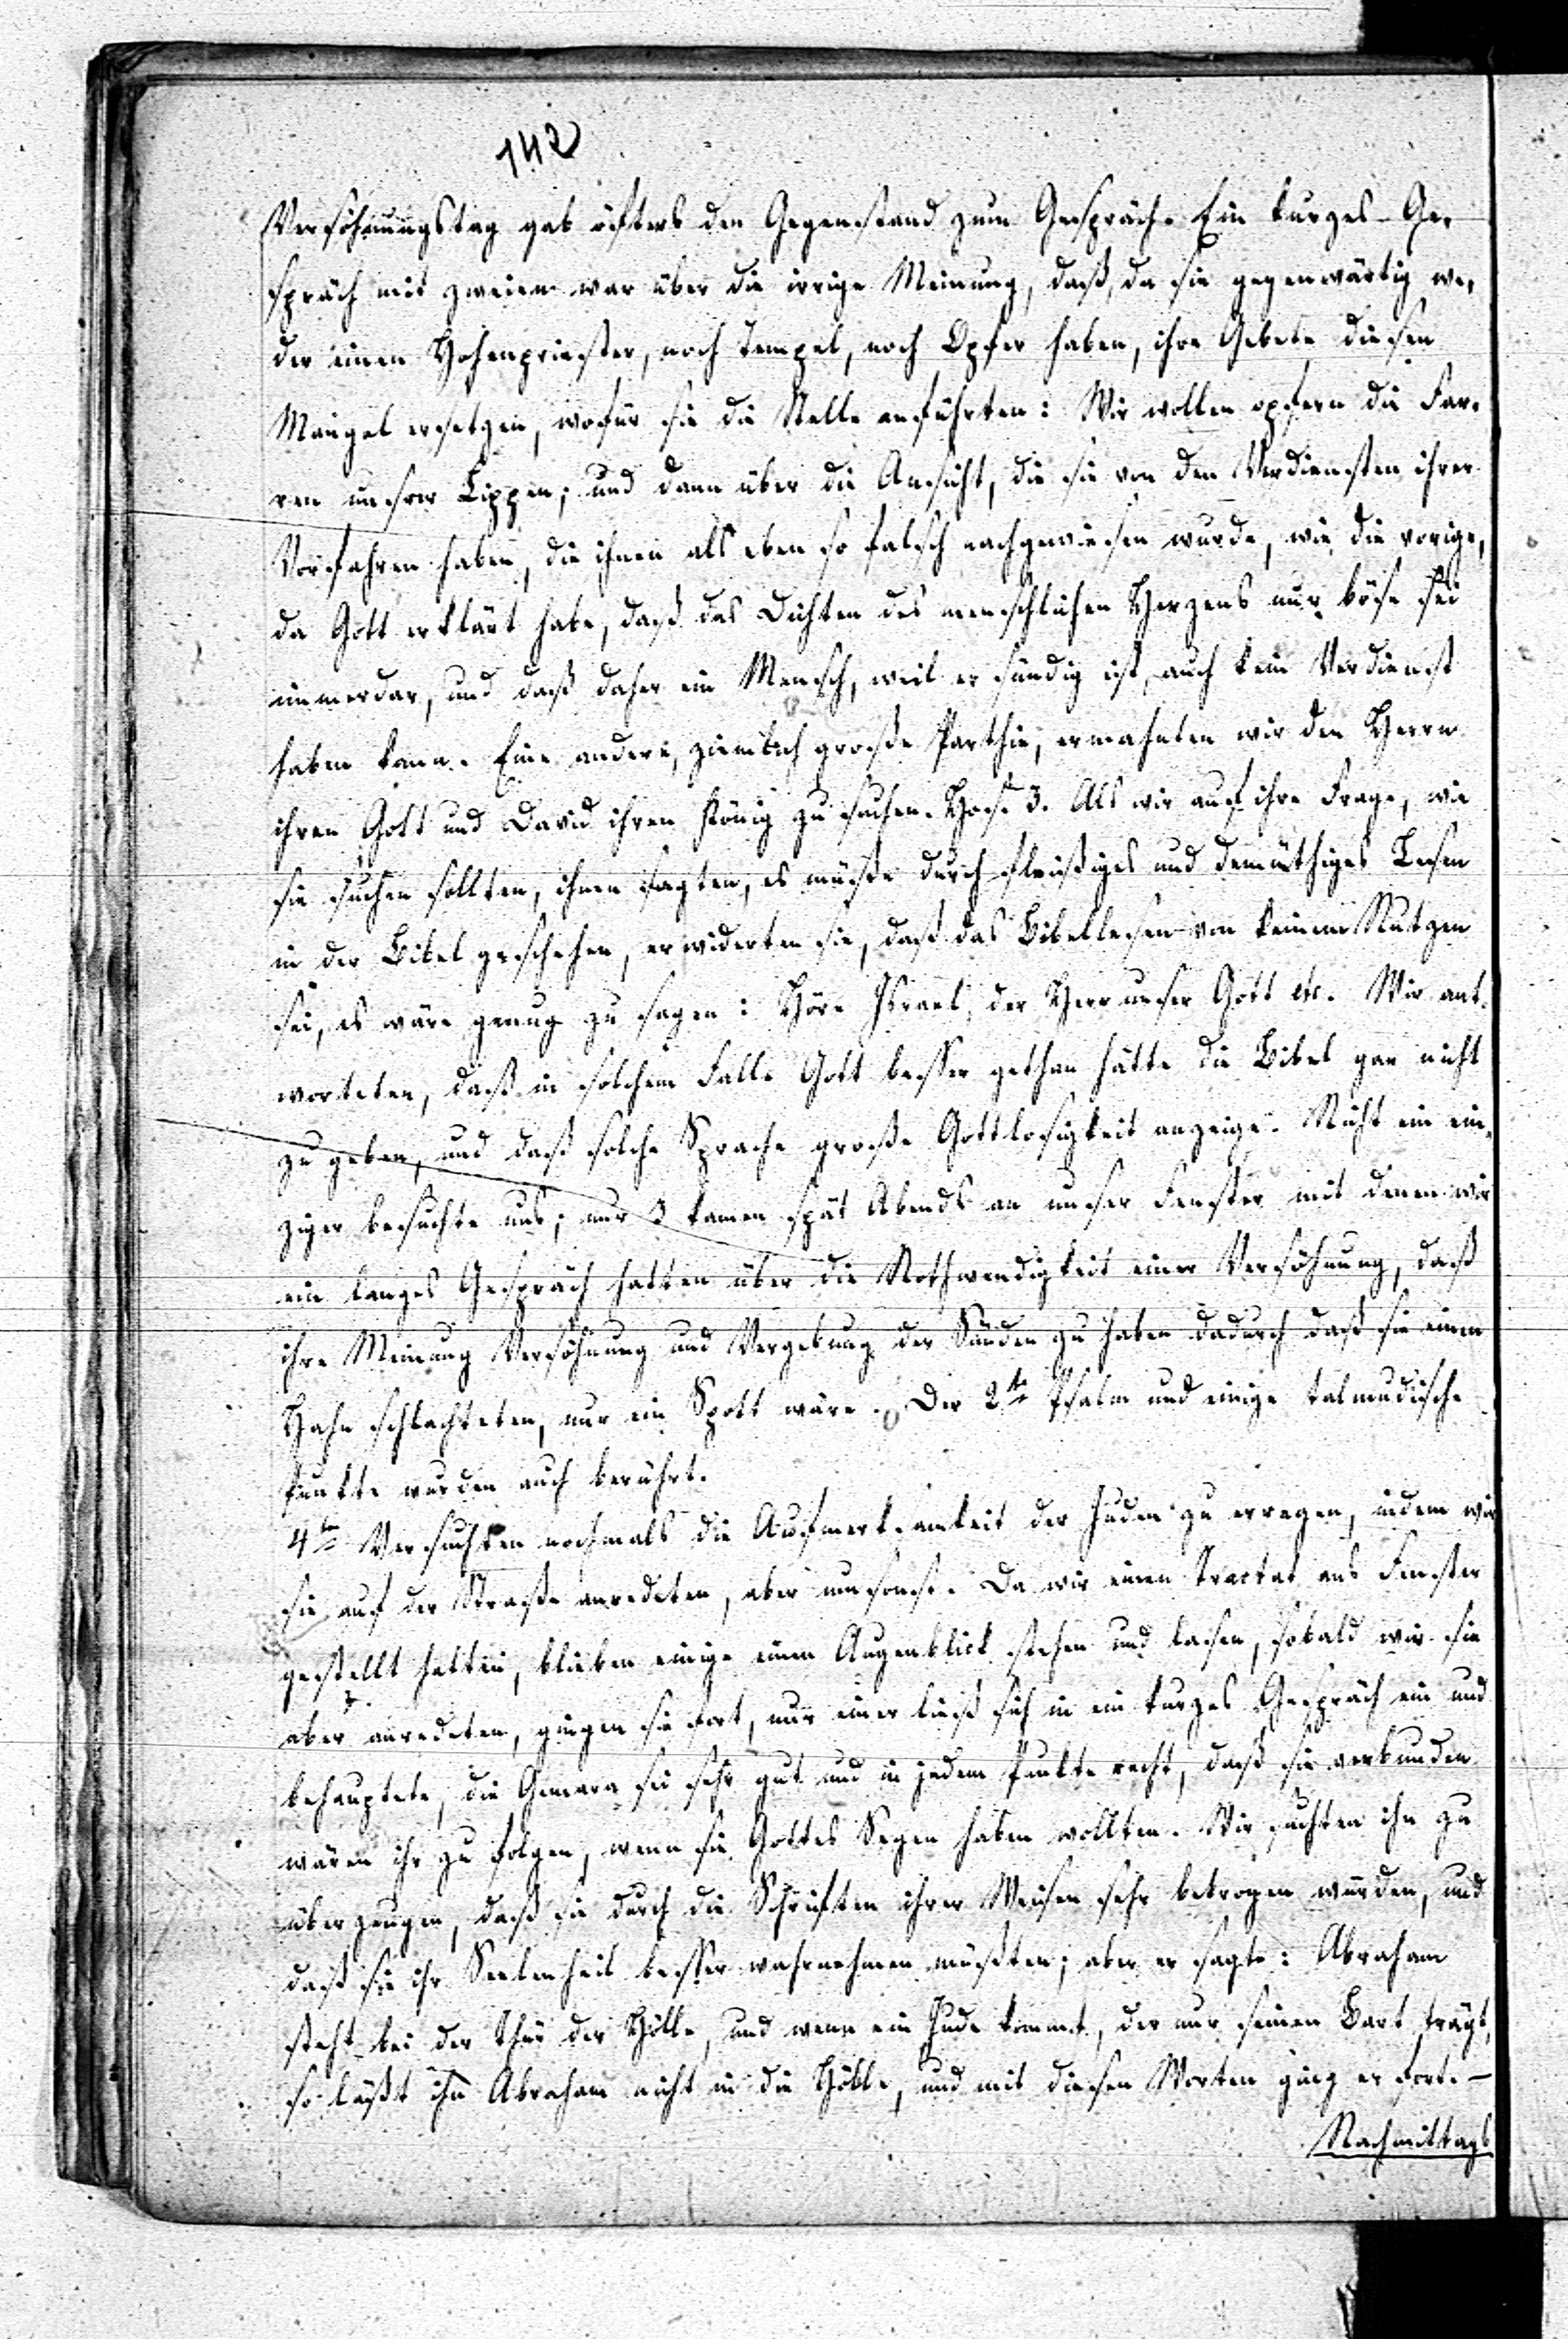 142
Versöhnungstag gab öfters den Gegenstand zum Gespräch. Ein kurzes Ge-
spräch mit zweien war über die irrige Meinung, daß, da sie gegenwärtig we-
der einen Hohenpriester, noch Tempel, noch Opfer haben, ihre Gebete diesen
Mangel ersetzen, wofür sie die Stelle anführten: Wir wollen opfern die Far-
ren unsrer Lippen; und dann über die Ansicht, die sie von den Verdiensten ihrer
Vorfahren haben, die ihnen als eben so falsch nachgewiesen wurde, wie die vorige,
da Gott erklärt habe, daß das Dichten des menschlichen Herzens nur böse sei
immerdar, und daß daher ein Mensch, weil er sündig ist, auch kein Verdienst
haben kann. Eine andere, ziemlich große Parthie, ermahnten wir den Herrn
ihren Gott und David ihren König zu suchen. Hos. 3. Als wir auf ihre Frage, wie
sie suchen sollten, ihnen sagten, es müsse durch fleißiges und demüthiges Lesen
in der Bibel geschehen, erwiderten sie, daß das Bibellesen von keinem Nutzen
sei, es wäre genug zu sagen: Höre Israel, der Herr unser Gott etc. Wir ant-
worteten, daß in solchem Falle Gott besser gethan hätte die Bibel gar nicht
zu geben, und daß solche Sprache große Gottlosigkeit anzeige. Nicht ein ein-
ziger besuchte uns; nur 3 kamen spät Abends an unser Fenster mit denen wir
ein langes Gespräch hatten über die Nothwendigkeit einer Versöhnung, daß
ihre Meinung Versöhnung und Vergebung der Sünden zu haben dadurch daß sie einen
Hahn schlachteten, nur ein Spott wäre. Der 2te Psalm und einige talmudische
Punkte wurden auch berührt.
4ten Versuchten nochmals die Aufmerksamkeit der Juden zu erregen, indem wir
sie auf der Straße anredeten, aber umsonst. Da wir einen Tractat ans Fenster
gestellt hatten, blieben einige einen Augenblick stehen und lasen, sobald wir sie
aber anredeten, gingen sie fort, nur einer ließ sich in ein kurzes Gespräch ein und
behauptete, die Gemara sei sehr gut und in jedem Punkte recht, daß sie verbunden
wären ihr zu folgen, wenn sie Gottes Segen haben wollten. Wir suchten ihn zu
überzeugen, daß sie durch die Schriften ihrer Weisen sehr betrogen würden, und
daß sie ihr Seelenheil besser wahrnehmen müßten; aber er sagte: Abraham
steht bei der Thür der Hölle, und wenn ein Jude kommt, der nur seinen Bart trägt,
so läßt ihn Abraham nicht in die Hölle, und mit diesen Worten ging er fort. –
Nachmittags